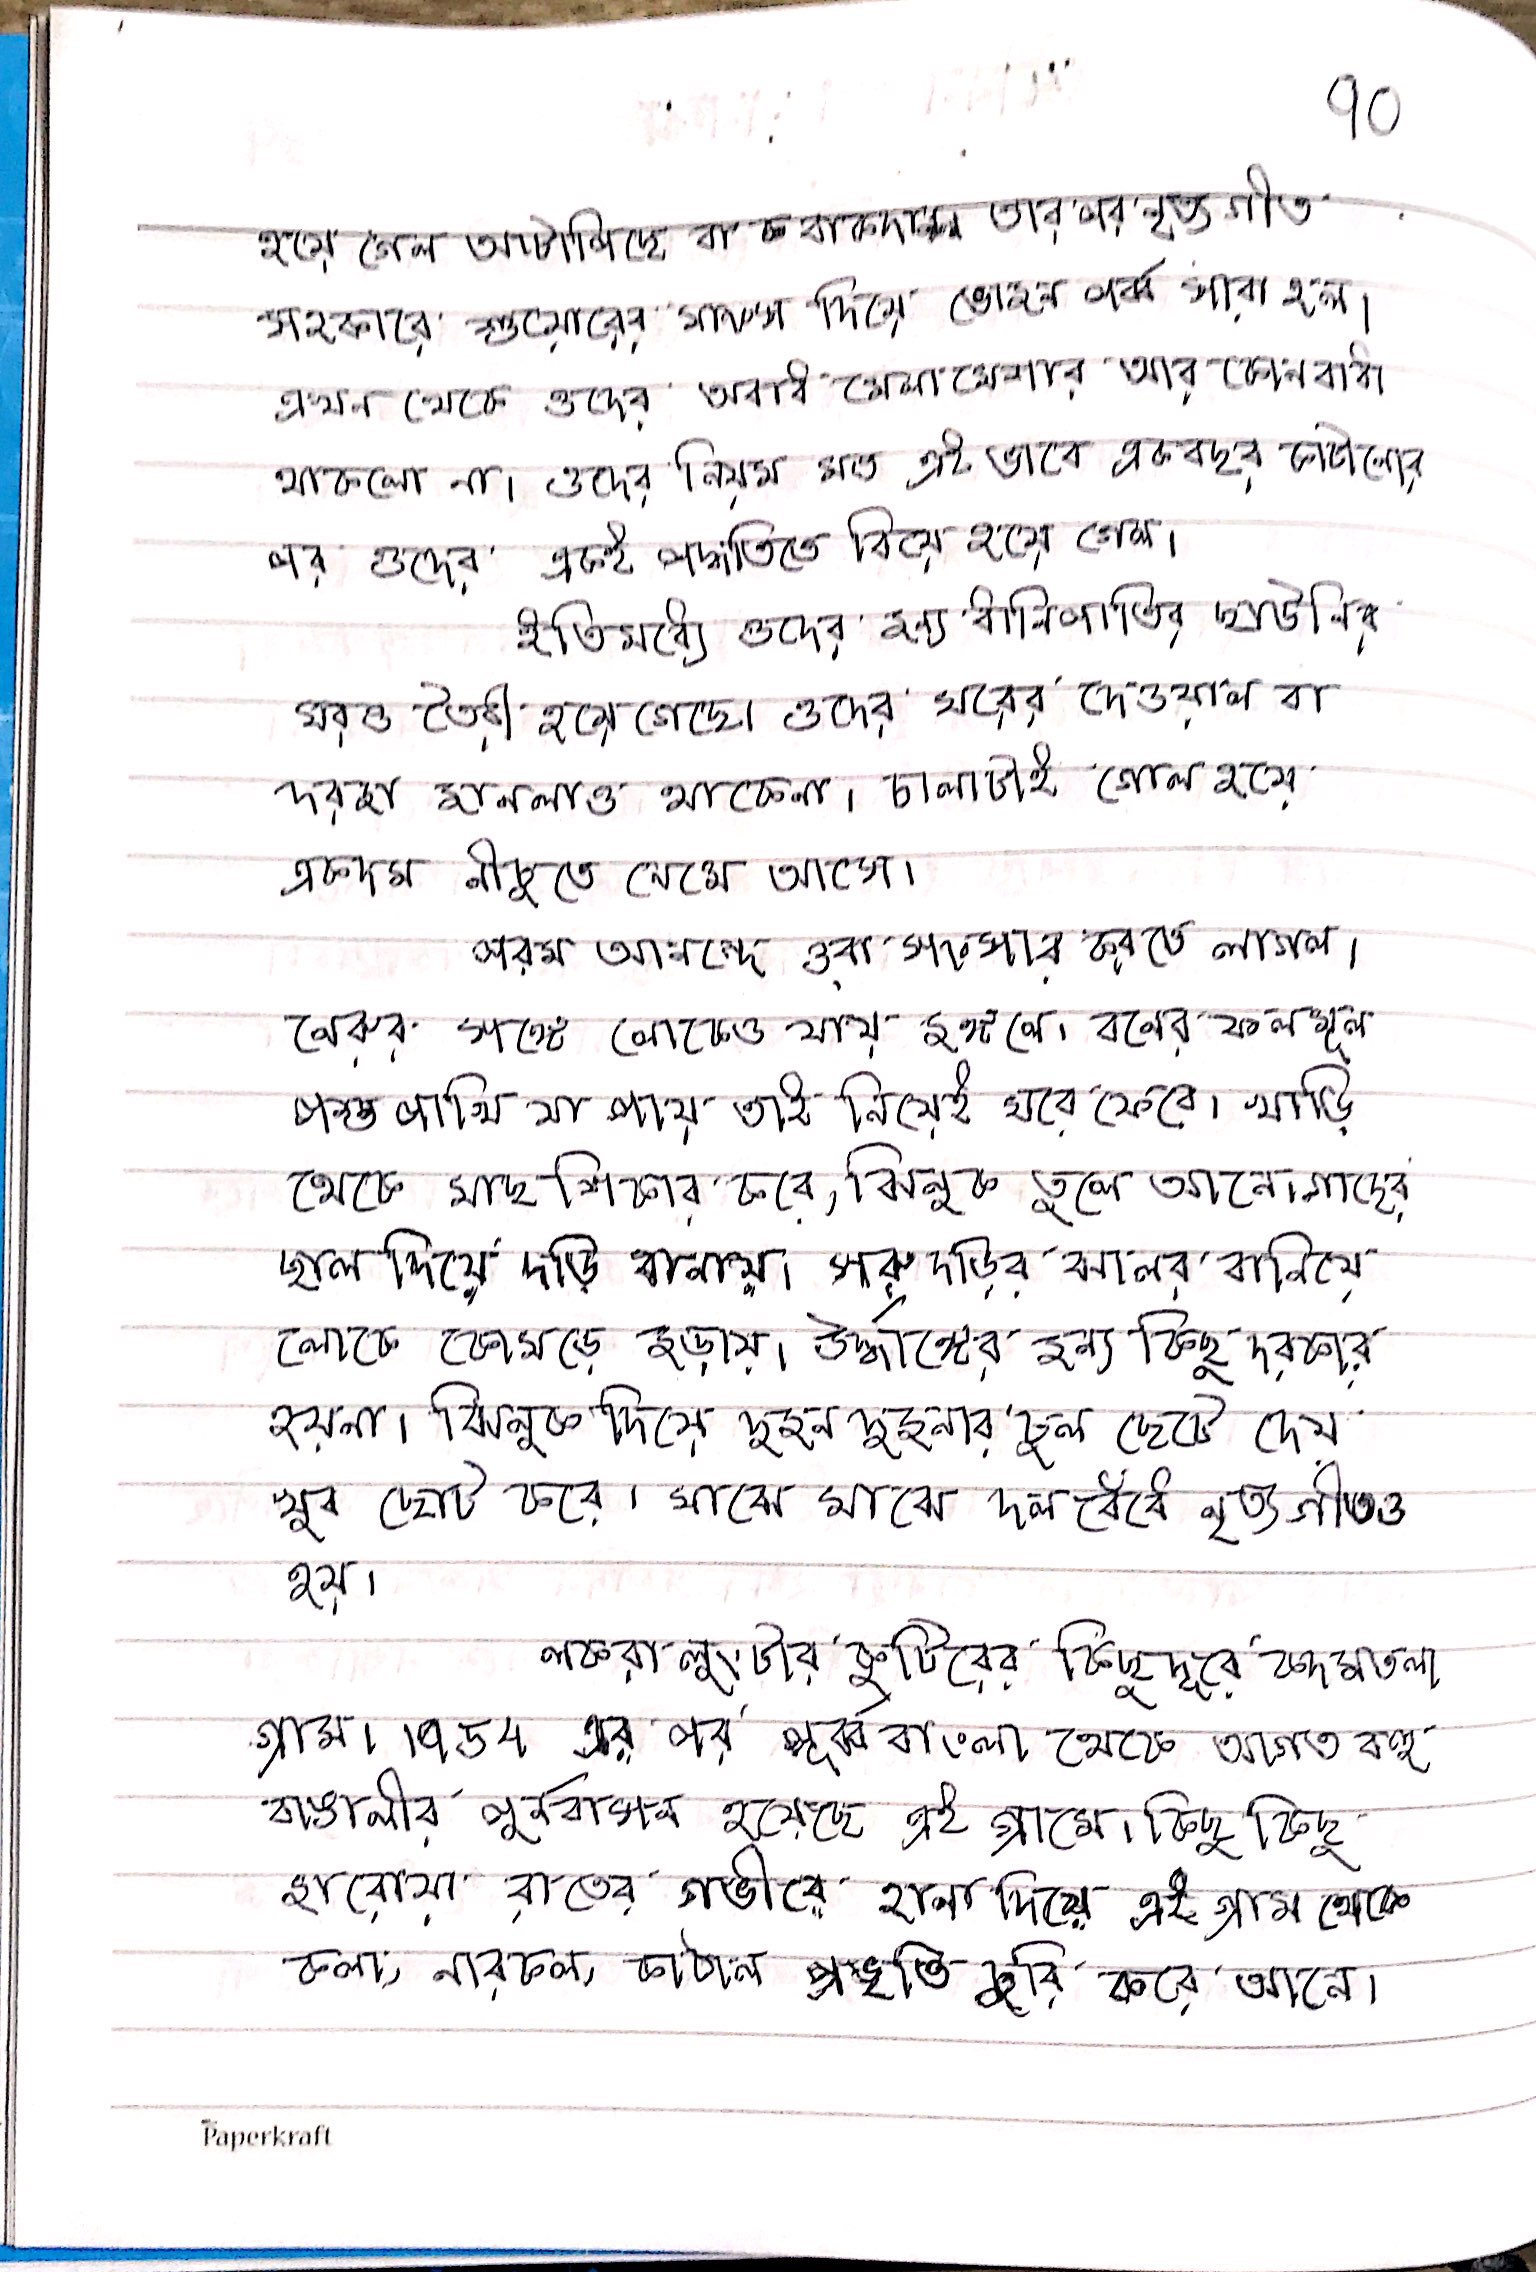 ৭০
হয়ে গেল অটোপিছে বা বাকদান। তারপর নৃত্য গীত
সহকারে শুয়োরের মাংস দিয়ে ভোজন পর্ব্ব সারা হল।
এখন থেকে ওদের অবাধ মেলামেশার আর কোন বাধা
থাকলো না। ওদের নিয়ম মত এই ভাবে একবছর কাটানোর
পর ওদের একই পদ্ধতিতে বিয়ে হয়ে গেল।
ইতিমধ্যে ওদের জন্য ধানিপাতির ছাউনির
ঘরও তৈরী হয়ে গেছে। ওদের ঘরের দেওয়াল বা
দরজা জানলাও থাকেনা। চালাটাই গোল হয়ে
একদম নীচুতে নেমে আসে।
পরম আনন্দে ওরা সংসার করতে লাগল।
নেরুর সঙ্গে লোকেও যায় জঙ্গলে। বনের ফলমূল
পশু পাখি যা পায় তাই নিয়েই ঘরে ফেরে। খাড়ি
থেকে মাছ শিকার করে, ঝিনুক তুলে আনে। গাছের
ছাল দিয়ে দড়ি বানায়। সরু দড়ির ঝালর বানিয়ে
লোকে কোমড়ে জড়ায়। উর্দ্ধাঙ্গের জন্য কিছু দরকার
হয়না। ঝিনুক দিয়ে দুজন দুজনার চুল ছেটে দেয়
খুব ছোট করে। মাঝে মাঝে দল বেঁধে নৃত্য গীতও
হয়।
লকরা লুংটার কুটিরের কিছু দূরে কদমতলা
গ্রাম। ১৯৫৪ এর পর পূর্ব্ব বাংলা থেকে আগত বহু
বাঙালীর পুর্নবাসন হয়েছে এই গ্রামে। কিছু কিছু
জারোয়া রাতের গভীরে হানা দিয়ে এই গ্রাম থেকে
কলা, নারকল, কাঠাল প্রভৃতি চুরি করে আনে।
Paperkraft